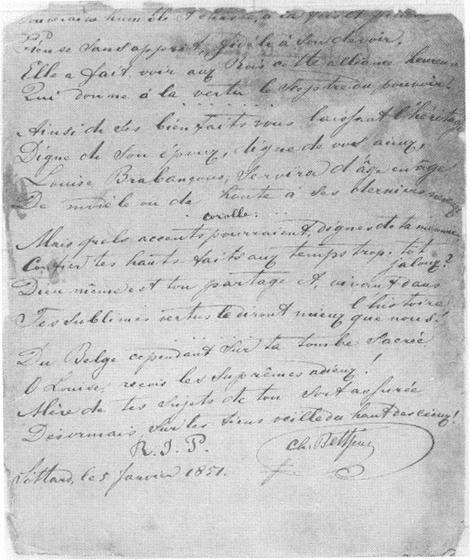 Pieuse sans apprêt, fidèle à son devoir,
Elle a fait voir aux Rois cette alliance heureuse
Qui donne à la vertu le sceptre du pouvoir!
Ainsi de ses bienfaits vous laissant l'héritage
Digne de son époux, digne de vos aïeux,
Louise, Brabançons, servira d'âge en âge
De modèle ou de honte à ses derniers neveux
corolle.
Mais quels accents pourraient, dignes de ta mémoire
Confier tes hauts faits aux temps trop tôt
jaloux?
Dieu même est ton partage et, vivant dans
l'histoire
Tes sublimes vertus le diront mieux que nous!
Du Belge cependant sur ta tombe sacrée
O Louise, reçois les suprêmes adieux!
Mère de tes sujets de ton sort assurée
Désormais, sur les tiens veille du haut des cieux!
R. I. P.
Sittard, le 5 Janvier 1851.